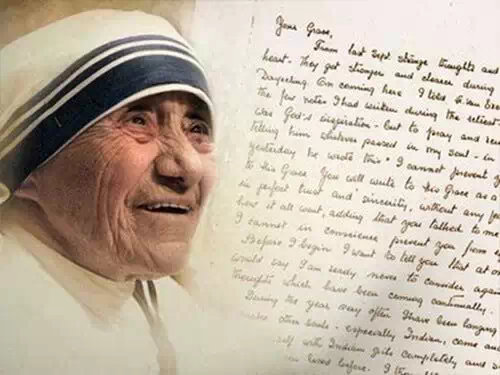 Your Grace,
From last Sept. strange thoughts and
heart. They got stronger and clearer during
Darjeeling. On coming here I told
the few notes I had written during the retreat
was God's inspiration - but to pray and
telling him whatever passed in my soul - in
yesterday he wrote this "I cannot prevent
to His Grace. You will write to His Grace as a
in perfect trust and sincerity, without any
how it all went, adding that you talked to me
I cannot in conscience prevent you from
Before I begin I want to tell you that at
would say I am ready never to consider again
thoughts which have been coming continually.
During the year very often I have been longing
make other souls - especially Indian, come and
self with Indian girls completely and
lived before. I